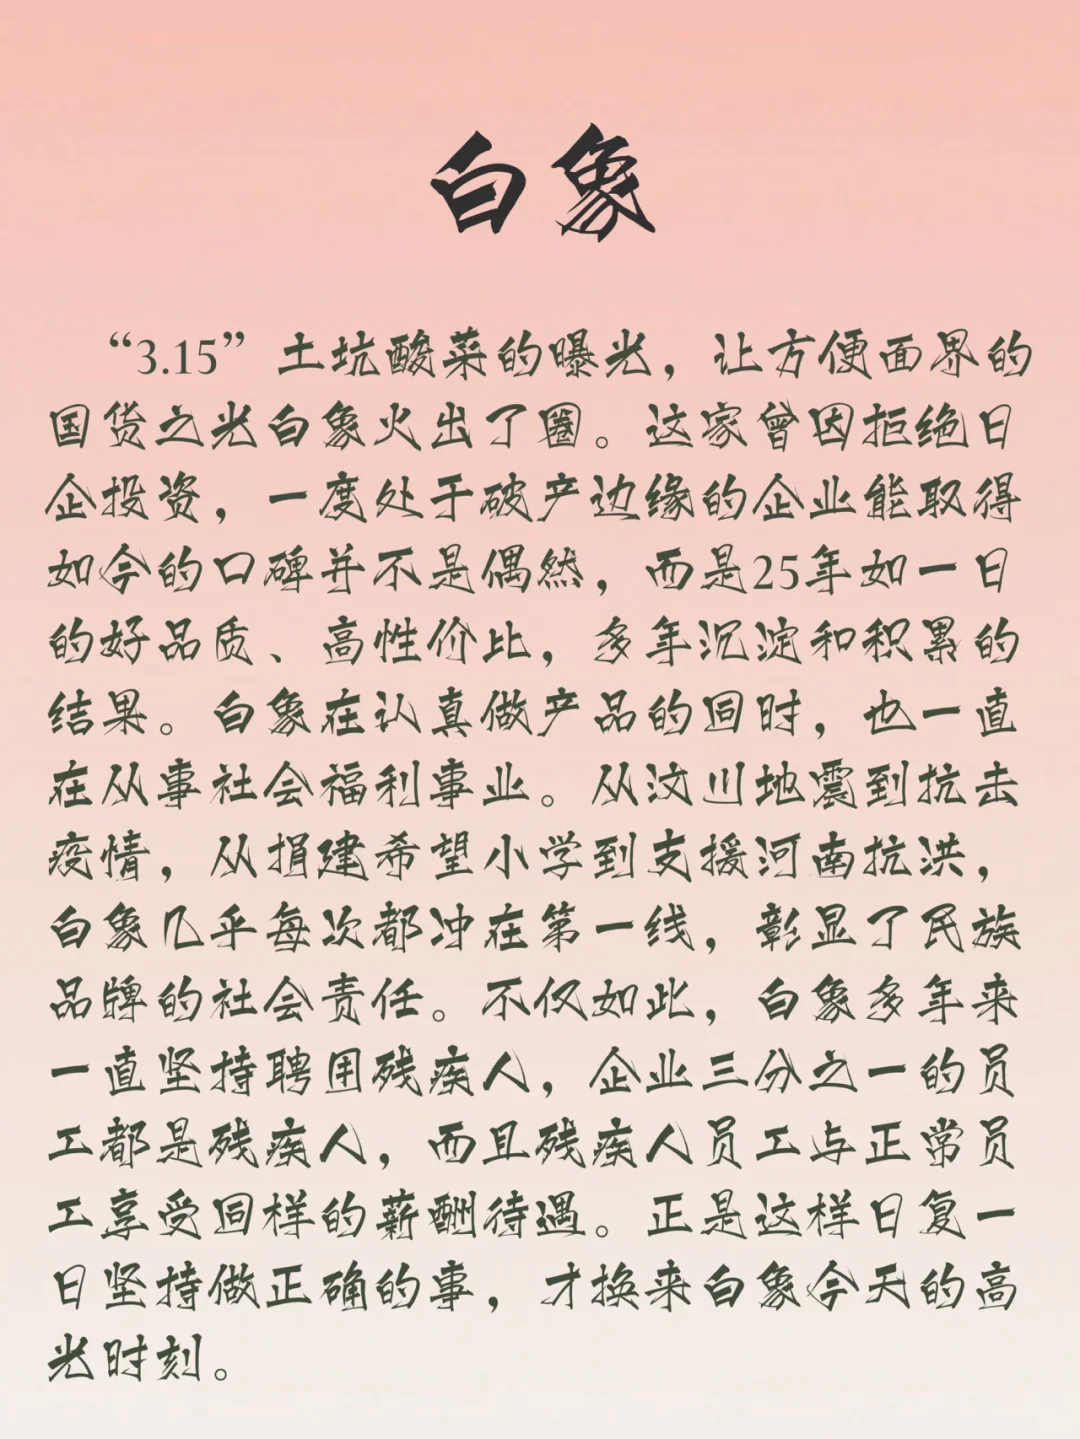 白象
“3.15”土坑酸菜的曝光，让方便面界的
国货之光白象火出了圈。这家曾因拒绝日
企投资，一度处于破产边缘的企业能取得
如今的口碑并不是偶然，而是25年如一日
的好品质、高性价比，多年沉淀和积累的
结果。白象在认真做产品的同时，也一直
在从事社会福利事业。从汶川地震到抗击
疫情，从捐建希望小学到支援河南抗洪，
白象几乎每次都冲在第一线，彰显了民族
品牌的社会责任。不仅如此，白象多年来
一直坚持聘用残疾人，企业三分之一的员
工都是残疾人，而且残疾人员工与正常员
工享受同样的薪酬待遇。正是这样日复一
日坚持做正确的事，才换来白象今天的高
光时刻。